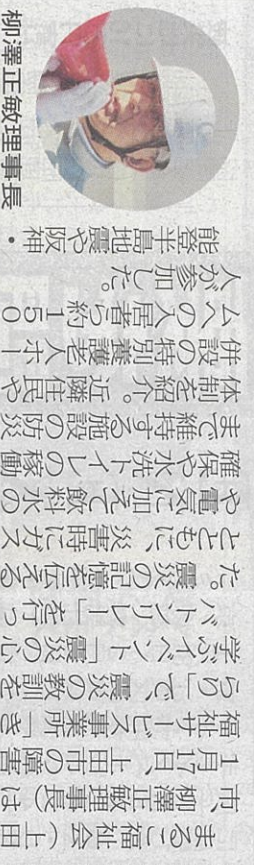 まるこ福祉会(上田
市、柳澤正敏理事長)は
1月17日、上田市の障害
福祉サービス事業所「き
らり」で、震災の教訓を
学ぶイベント「震災の心
バトンリレー」を行っ
た。震災の記憶を伝える
とともに、災害時にガス
や電気に加えて飲料水の
確保や水洗トイレの稼働
まで維持する施設の防災
体制を紹介。近隣住民や
併設の特別養護老人ホー
ムへの入居者ら約150
人が参加した。
能登半島地震や阪神・
柳澤正敏理事長